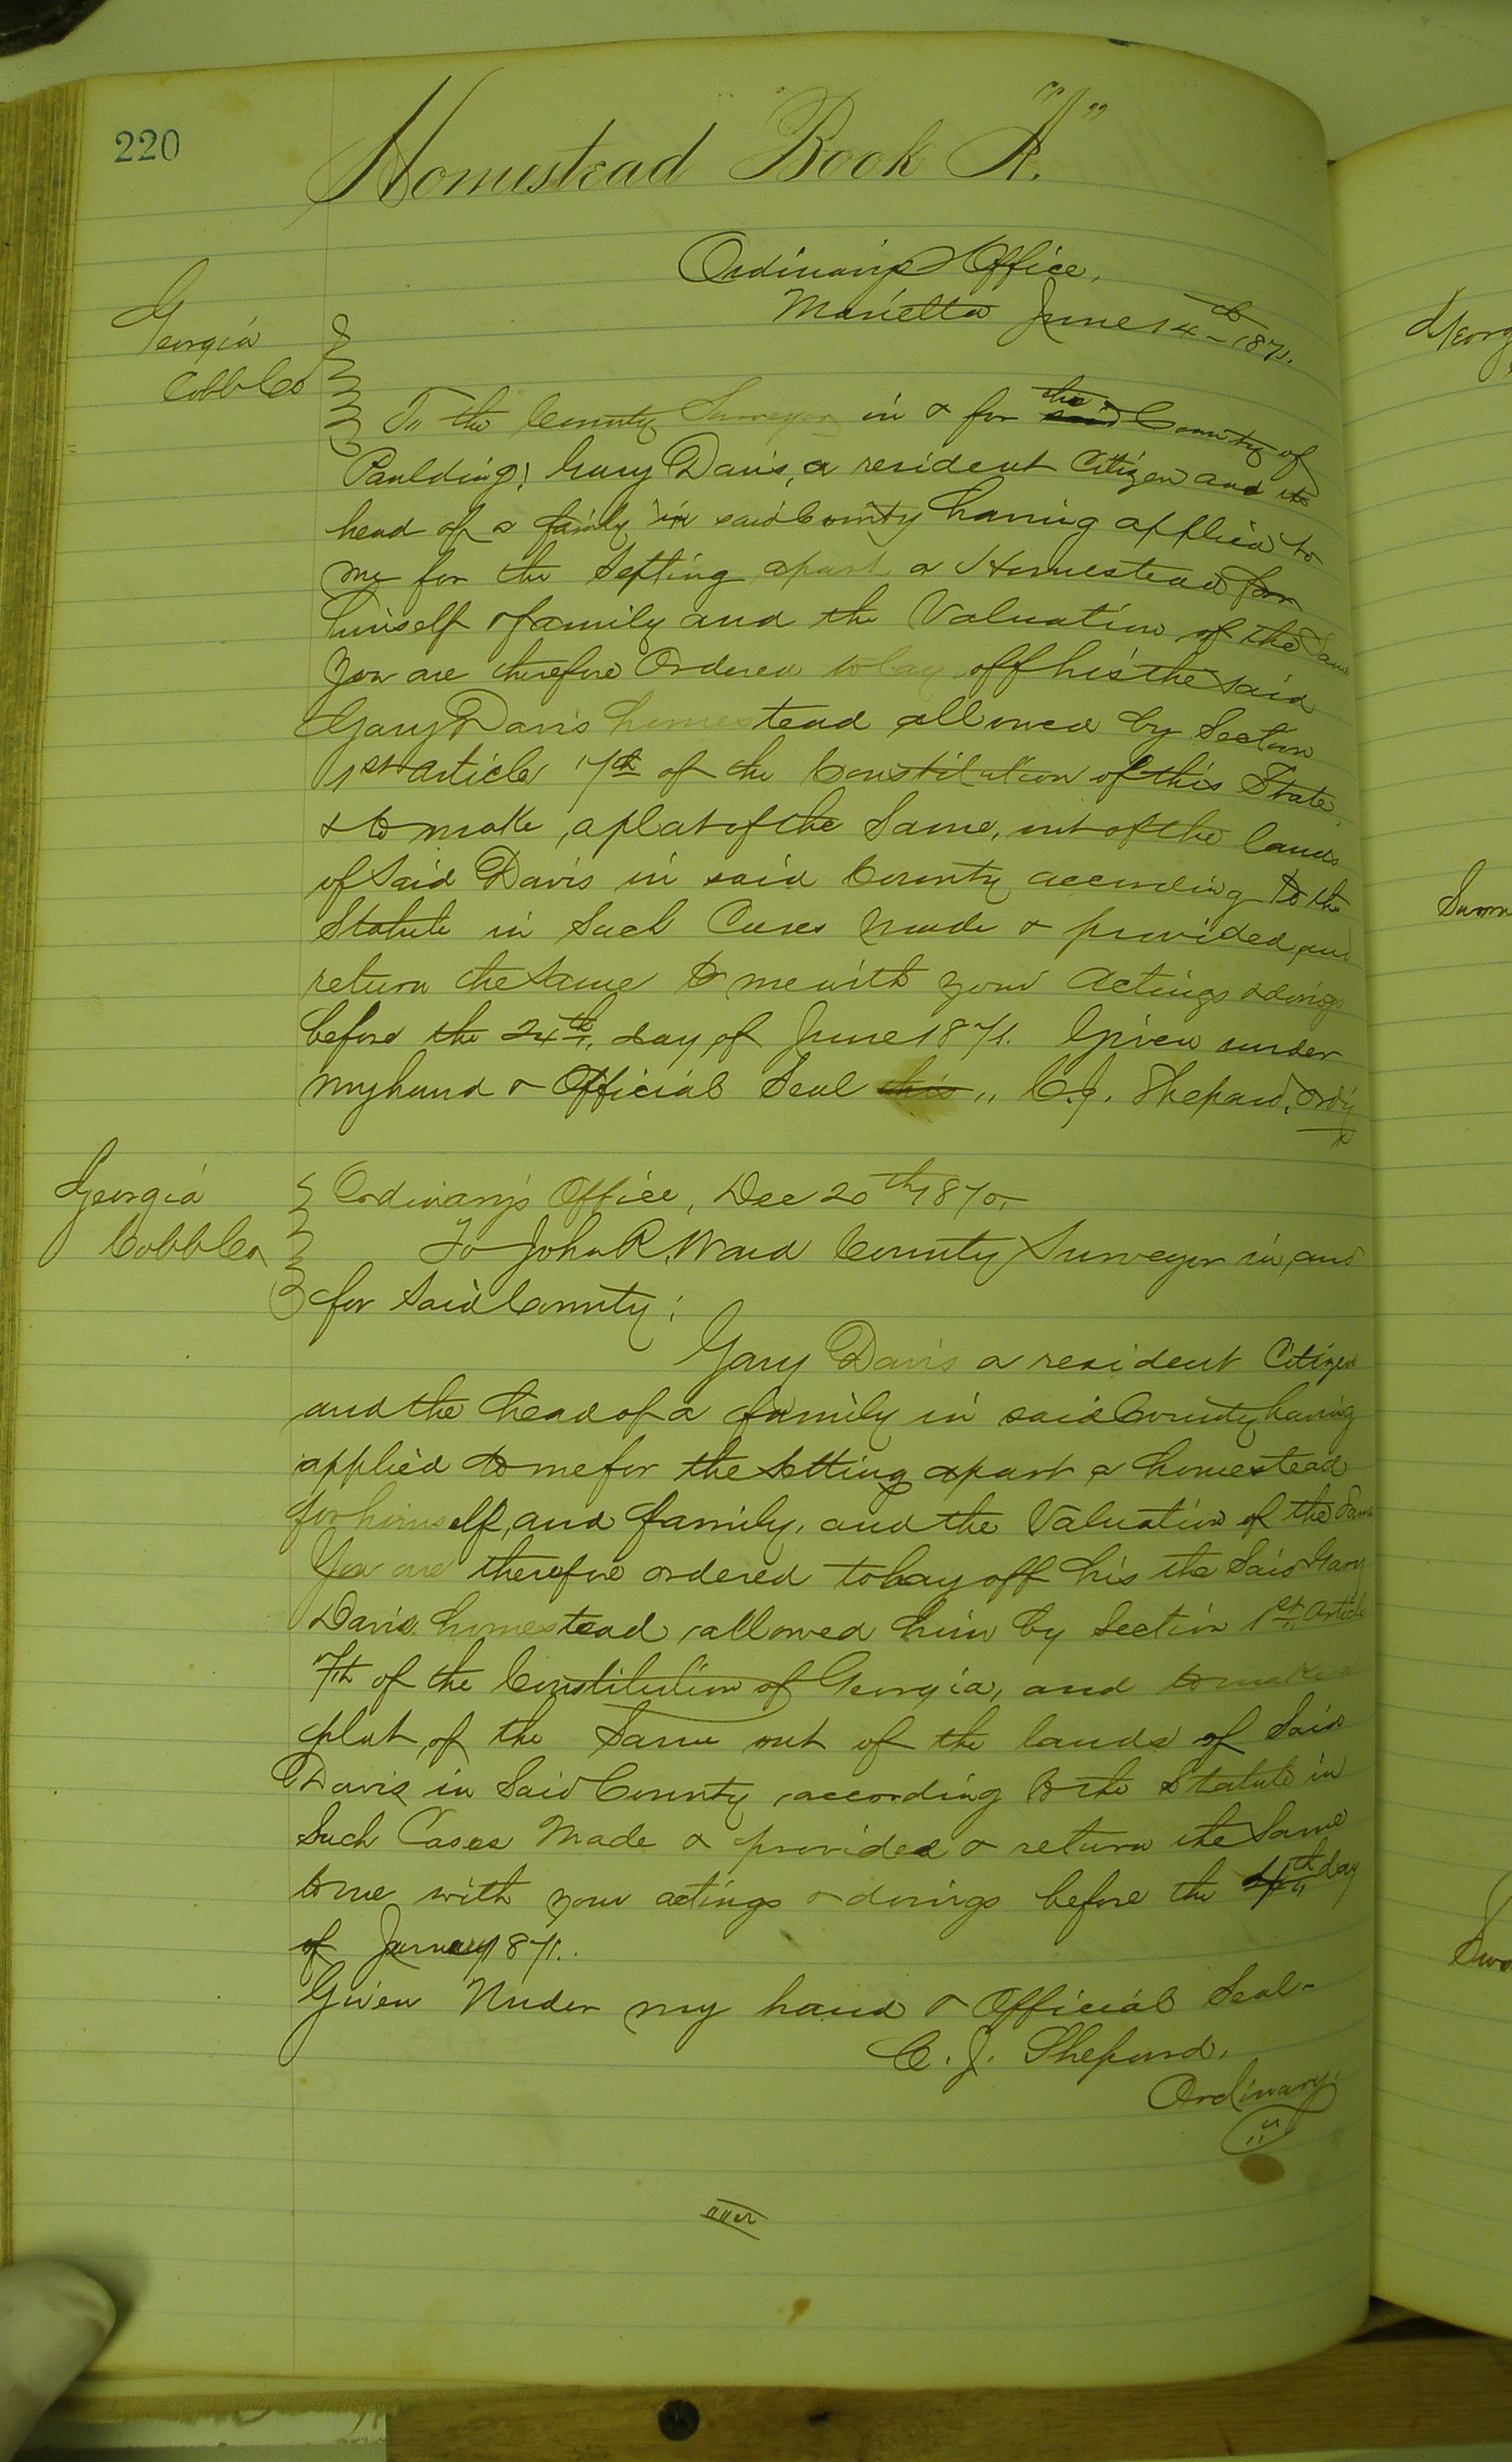 220
Homestead Book "A".
Ordinary's Office,
Marietta June 14th 1871.
Georgia
Cobb Co
To the County Surveyor in & for the said County of
Paulding; Gary Davis, a resident Citizen and the
head of a family in said County having applied to
me for the Setting apart a Homestead for
himself & family and the Valuation of the Same
You are therefore Ordered to lay off his the said
Gary Davis homestead allowed by Section
1st article 7th of the Constitution of this State
& to make a plat of the Same, out of the lands
of Said Davis in said County according to the
Statute in Such Cases made & provided, and
return the Same to me with your Actings & doings
before the 24th, day of June 1871. Given under
my hand & Official Seal this ,, C.J. Shepard, Ordy
Georgia
Cobb Co
Ordinary's Office, Dec 20th 1870.
To John R. Ward County Surveyor in, and
for Said County:
Gary Davis a resident Citizen
and the head of a family in said County having
applied to me for the Setting apart a homestead
for himself, and family, and the Valuation of the Same
You are therefore ordered to lay off his the Said Gary
Davis homestead, allowed him by Section 1st, Article
7th of the Constitution of Georgia, and to make a
plat, of the Same out of the lands of Said
Davis in Said County, according to the Statute in
Such Cases Made & provided & return the Same
to me with your actings & doings before the 4th day
of January 1871.
Given Under my hand & Official Seal-
C. J. Shepard.
Ordinary.
over
Georg